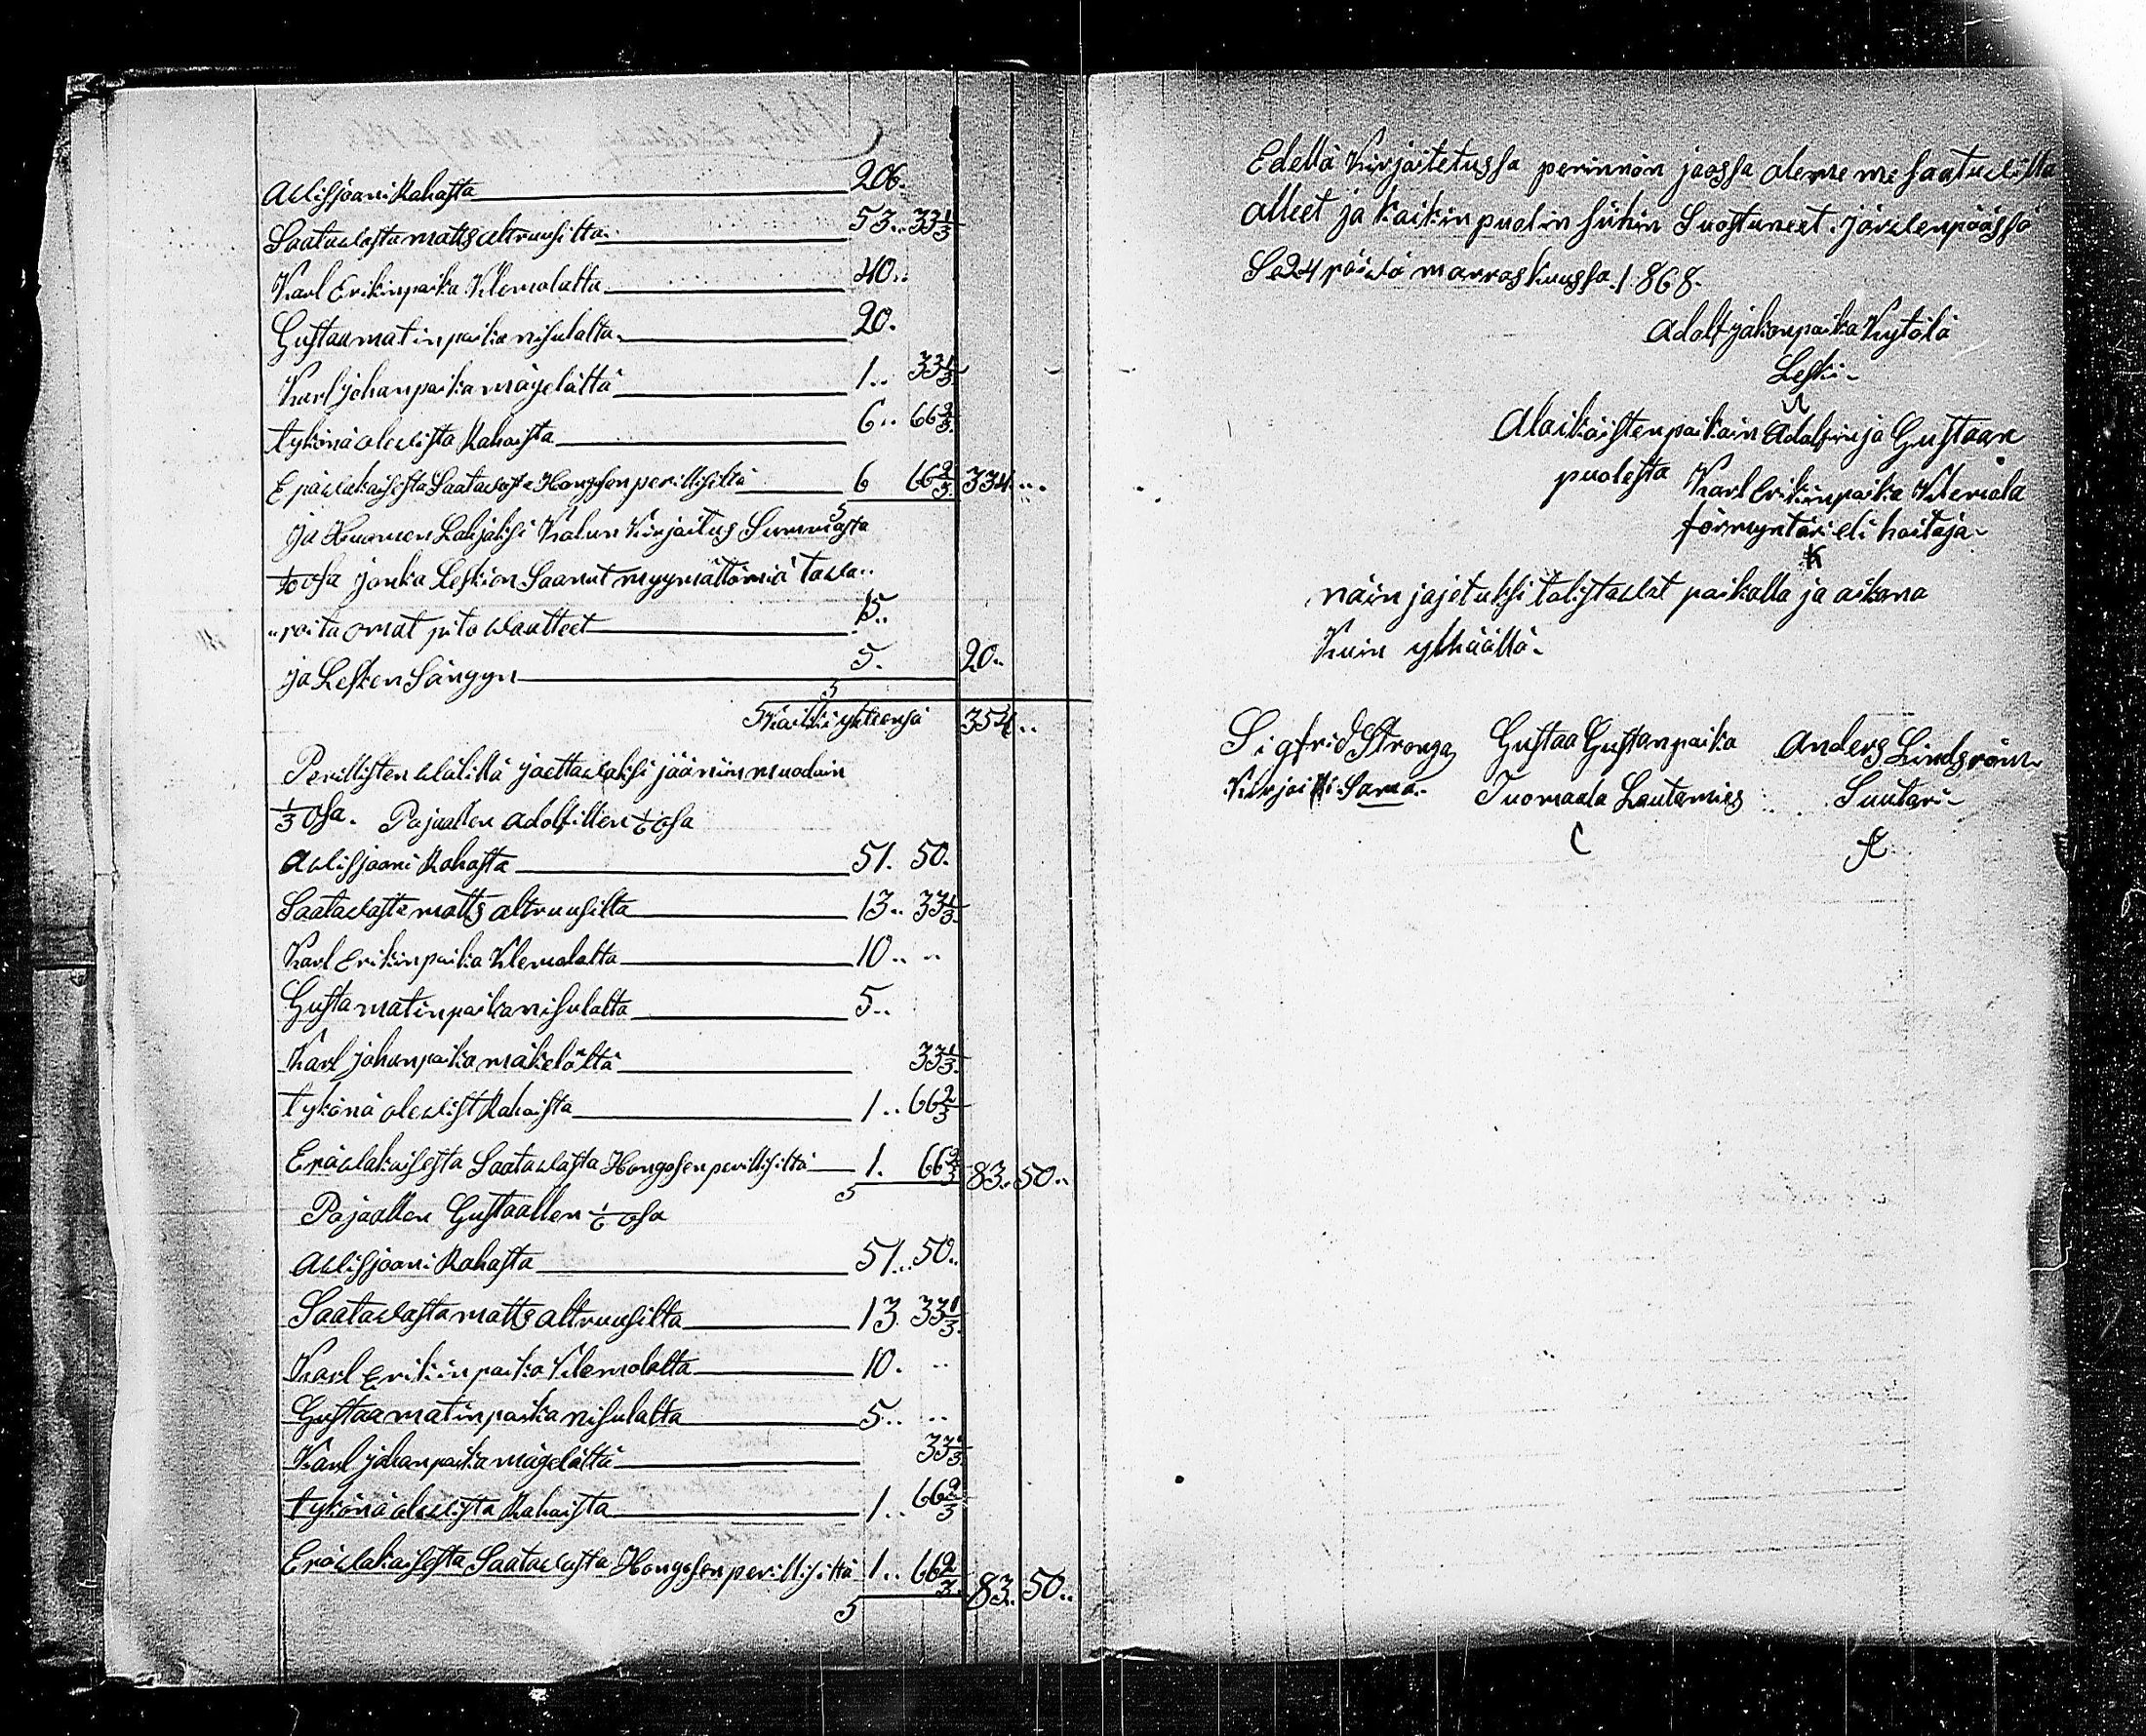 Awisjooni Rahasta 206.
Saatawasta matts altruusilta 53.. 33 1/3
Karl Erikinpoika Klemolalta 40..
Gustaa matinpoika nisulalta 20.
Karl johanpoika mäyelältä 1.. 33 1/3
tykönä olewista Rahoista 6.. 66 2/3
Epäwakaisesta Saatawasta Hongosen perillisiltä 6 66 2/3 334...
ja Huomen Lahjaksi Kalun Kirjoitus Summasta
1/20 osa jonka Leski on Saanut myymättömiä tawa..
..roita omat pito waatteet 15..
ja Lesken Sängyn 5. 20..
Kaikki yhteensä 354..
Perillisten wälillä jaettawaksi jääniin muodoin
1/3 Osa. Pojuallen adolfillen 1/6 osa
Awisjooni Rahasta 51. 50.
Saatawasta matts altruusilta 13.. 33 1/3
Karl Erikinpoika Klemolalta 10.. ..
Gusta matinpoika nisulalta 5..
Karl johanpoika mäkelältä 33 1/3
tykönä olewist Rahoista 1.. 66 2/3
Epäwakaisesta Saatawasta Hongosen perillisiltä 1. 66 2/3 83.. 50..
Pojaallen Gustaallen 1/6 osa
Awisjooni Rahasta 51.. 50..
Saatawasta matts altruusilta 13. 33 1/3
Karl Erikinpoika Klemolalta 10. ..
Gustaa matinpoika nisulalta 5.. ..
Karl johanpoika mäyelältä 33 1/3
tykönä olewista Rahoista 1.. 66 2/3
Epäwakaisesta Saatawasta Hongosen perillisiltä 1.. 66 2/3 83.. 50..
Edellä Kirjoitetussa perinnön jaossa olemme me saatuwilla
olleet ja kaikin puolin siihin Suostuneet. Järwenpäässä
Se 24 päiwä marraskuussa. 1868.
Adolf jakonpoika Kytölä
Leski-
Alaikäisten poikain Adolfin ja Gustaan
puolesta Karl Erikinpoika Klemola
förmyntäri eli hoitaja-
näin jajetuksi todistawat paikalla ja aikana
Kuin ylhäällä-
Sigfrid Stronga Gustaa Gustanpoika Anders Lindsröm
Kirjoitti Sama.- Tuomaala Lautamies Suutari-